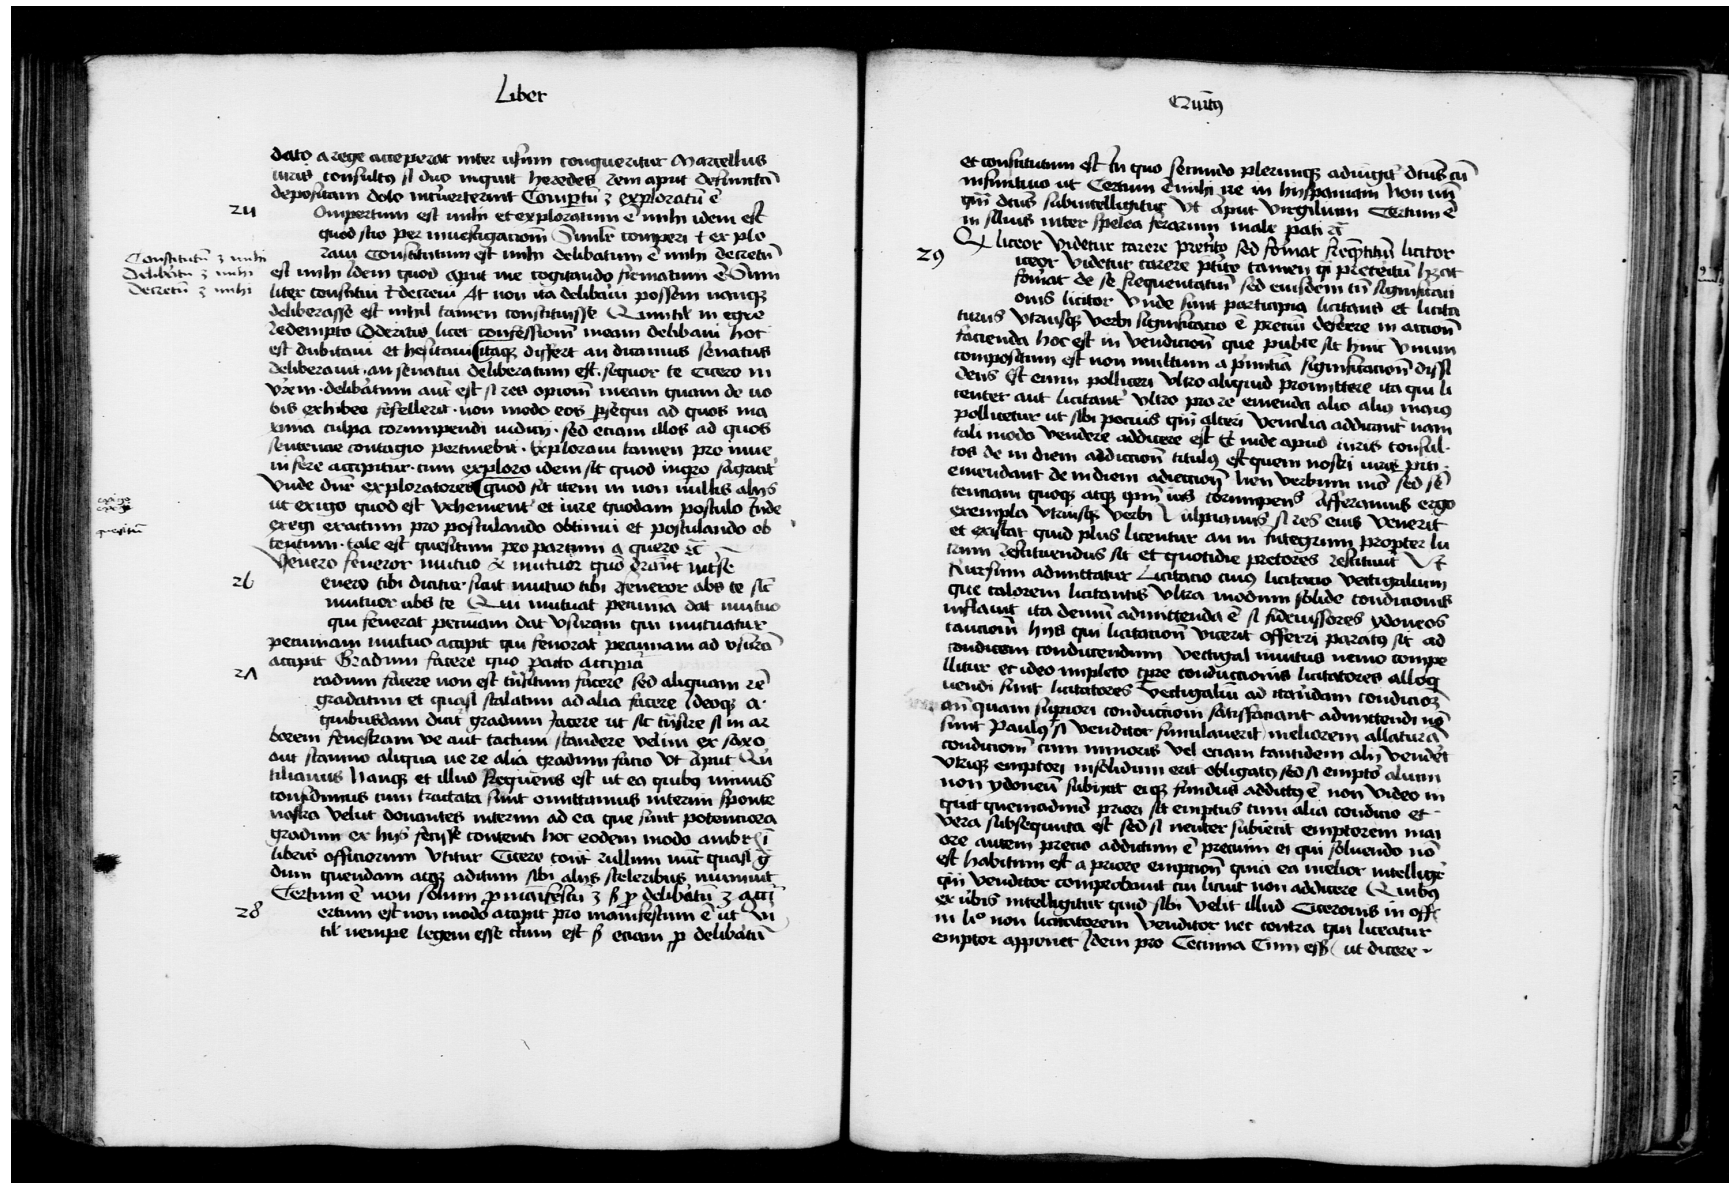 Liber
dato a rege acceperat inter usum conqueritur Marcellus
iuris consultꝯ si duo inquit heredes rem aput defunctū
depositam dolo intˀverterint Comꝑtū ꝫ exploratū ē
24
Ompertum est mihi et exploratum ē mihi idem est
quod scio per investigacionē Similr̄ comperi ⁊ explo
ravi Constitutum est mihi delibatum ē mihi decretū
Constitutū ꝫ mihi
Delibatū ꝫ mihi
Decretū ꝫ mihi
est mihi idem quod aput me cogitando firmatum ē Simi
liter constitui ⁊ decrevi At non ita delibavi possem nanqꝫ
deliberasse est nihil tamen constituisse Quintil in egre
redempto Oderitis licet confessionē meam delibavi hoc
est dubitavi et hesitavi itaqꝫ differt an dicamus senatus
deliberavit · an senatui deliberatum est · sequor te Cicero in
v̄rem · delibatum aut̄ est si res opionē meam quam de vo
bis exhibeo fefellerit · non modo eos ꝑsequi ad quos ma
xima culpa corrumpendi iudicij · sed etiam illos ad quos
sentencie contagio pertinebit · Exploravi tamen pro inue
in fere accipitur · cum exploro idem sit quod inqro sagacit̄
Unde dnr̄ exploratores quod sit item in non nullis alijs
ut exigo quod est vehement̄ et iure quodam postulo Inde
exegi exactum pro postulando obtinui et postulando ob
tentum · tale est quesitum pro partum a quero ⁊c̄
quesitū
Venero feneror mutuo & mutuor quo drānt int̄ se
26
enero tibi dicitur sicut mutuo tibi feneror abs te sic̄
mutuor abs te Qui mutuat pecuniā dat mutuo
qui fenerat pecuniam dat usuram qui mutuatur
pecuniam mutuo accipit qui fenorat̄ pecuniam ad usurā
accipit Gradum facere quo pacto accipia
27
radum facere non est trāsitum facere sed aliquam rē
gradatim et quasi scalatim ad alia facere Ideoqꝫ a ·
quibusdam dicit̄ gradum facere ut sic trāsire si in ar
borem fenestram ve aut tactum scandere velim ex saxo
aut scamno aliqua ve re alia gradum facio Ut aput Qu
tilianus Nanqꝫ et illud frequens est ut ea quibꝯ minus
confidimus cum tractata sunt omittamus interim sponte
nostra velut donantes interim ad ea que sunt potenciora
gradum ex hijs fecisse contenti hoc eodem modo
libris officiorum utitur Cicero cont̄ rullum nūc quasi g̃
dum quendam atqꝫ aditum sibi alijs sceleribus munivit
Certum ē non solum ꝓ manifesto ꝫ ꝓ delibatū ꝫ acci
28
ertum est non modo accipit̄ pro manifestum ē ut Qu
til nempe legem esse ctum est etiam ꝓ delibatū
Quītꝯ
et constitutum est In quo secundo plerunqꝫ adiungit̄ dtus cū
infinitivo ut Certum ē mihi ire in hispaniam Non unq̄
qn̄ dtus subintelligitur Ut aput virgilium Certum ē
in silvis inter spelea ferarum male pati ⁊c̄
Q liceor videtur carere pretito sed format freqn̄titū licitor
29
iceor videtur carere p̄tito tamen qi preteitū hꝫat
format de se frequentatiuū sed eiusdem tn̄ significati
onis licitor Unde sunt participia licitans et licita
turus Utriusqꝫ verbi significatio ē precium deferre in actionē
facienda hoc est in vendicionē que pub̄te sit hinc Unum
compositum est non multum a p̄mitia significationē dissi
dens Est enim polliceri ultro aliquid promittere ita qui li
center aut licitant̄ ultro pro re emenda alio aliꝯ maiꝯ
pollicetur ut sibi pocius qm̄ alteri venalia addicant nam
tali modo vendere addicere est Et inde apud iuris consul-
tos de in diem addictionē titulꝯ est quem nostri iuris p̄iti ·
emendant de in diem adiectionē hien verbum mō sed sē
tentiam quoqꝫ atqꝫ ipm̄ ius corrumpens afferamus ergo
exempla utriusqꝫ verbi Ulpianus si res eius venerit
et existat quid plus licentur an in Integrum propter lu
crum restituendus sit et quotidie pretores restituunt Ut
Rursum admittatur Licitatio cuiꝯ licitatio vectigalium
que calorem licitantis ultra modum solide condicionis
inflavit ita demum admittenda ē si fideiussores ydoneos
caucionē hijs qui licitationē vicerit offerri paratꝯ sit ad
condicem conducendum vectigal invitus nemo compe
llitur et ideo impleto tp̄re conductionis licitatores alloq̄
uendi sunt licitatores vectigaliū ad iterādam condicioꝫ
an̄ quam suꝑiori conductioni satisfaciant admittendi nō
sunt Paulꝯ si venditor simulaverit meliorem allaturā
conditionē cum minoris vel etiam tantidem alij vendet
Utriqꝫ emptori insolidum erit obligatꝯ sed si emptōr alium
non ydoneū subijcit eiqꝫ fundus addictꝯ ē non video in
quit quemadmō priori sit emptus cum alia condicio et ·
vera subsequuta est sed si neuter subiecit emptorem mai
ore autem precio addictum ē precium ei qui solvendo nō
est habitum est a priore emptionē quia ea melior intelligit̄
qm̄ venditor comprobavit cui licuit non addicere Quibꝯ
ex v̄bis intelligitur quid sibi velit illud Ciceronis in off̄
in lº non licitatorem venditor nec contra qui liceatur
emptor apponet Idem pro Cecinna Cum esß ut dicere ·